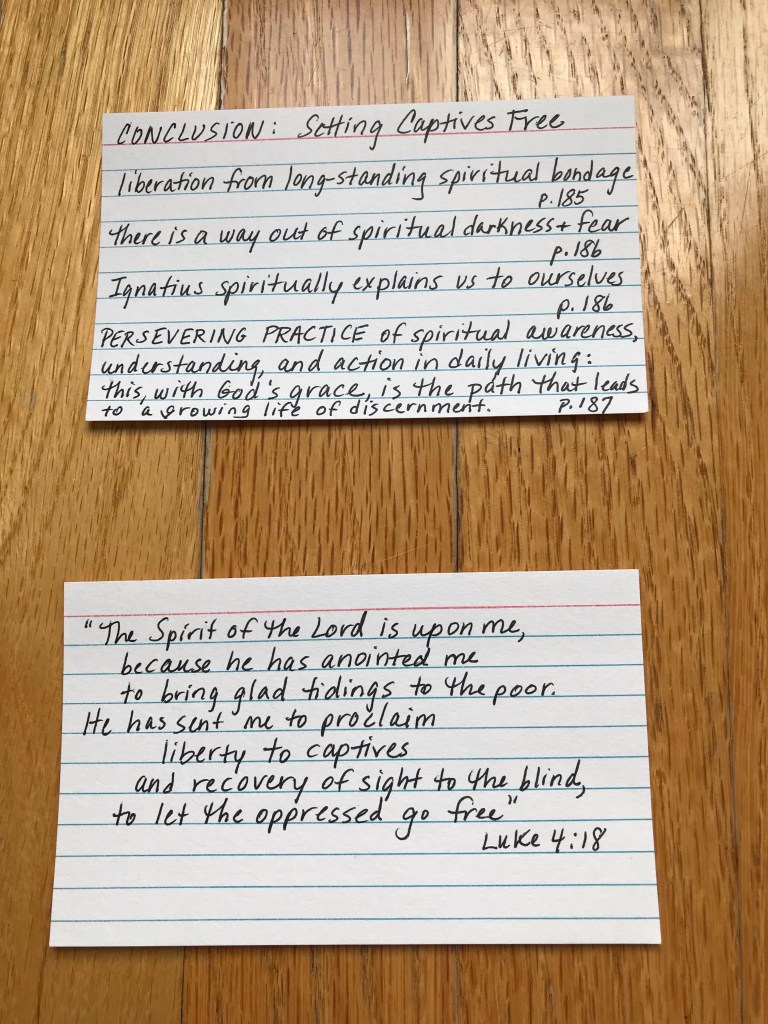 CONCLUSION: Setting Captives Free
liberation from long-standing spiritual bondage
p.185
there is a way out of spiritual darkness + fear
p.186
Ignatius spiritually explains us to ourselves
p.186
PERSEVERING PRACTICE of spiritual awareness,
understanding, and action in daily living:
this, with God's grace, is the path that leads
to a growing life of discernment. p.187
"The Spirit of the Lord is upon me,
because he has anointed me
to bring glad tidings to the poor.
He has sent me to proclaim
liberty to captives
and recovery of sight to the blind,
to let the oppressed go free"
Luke 4:18